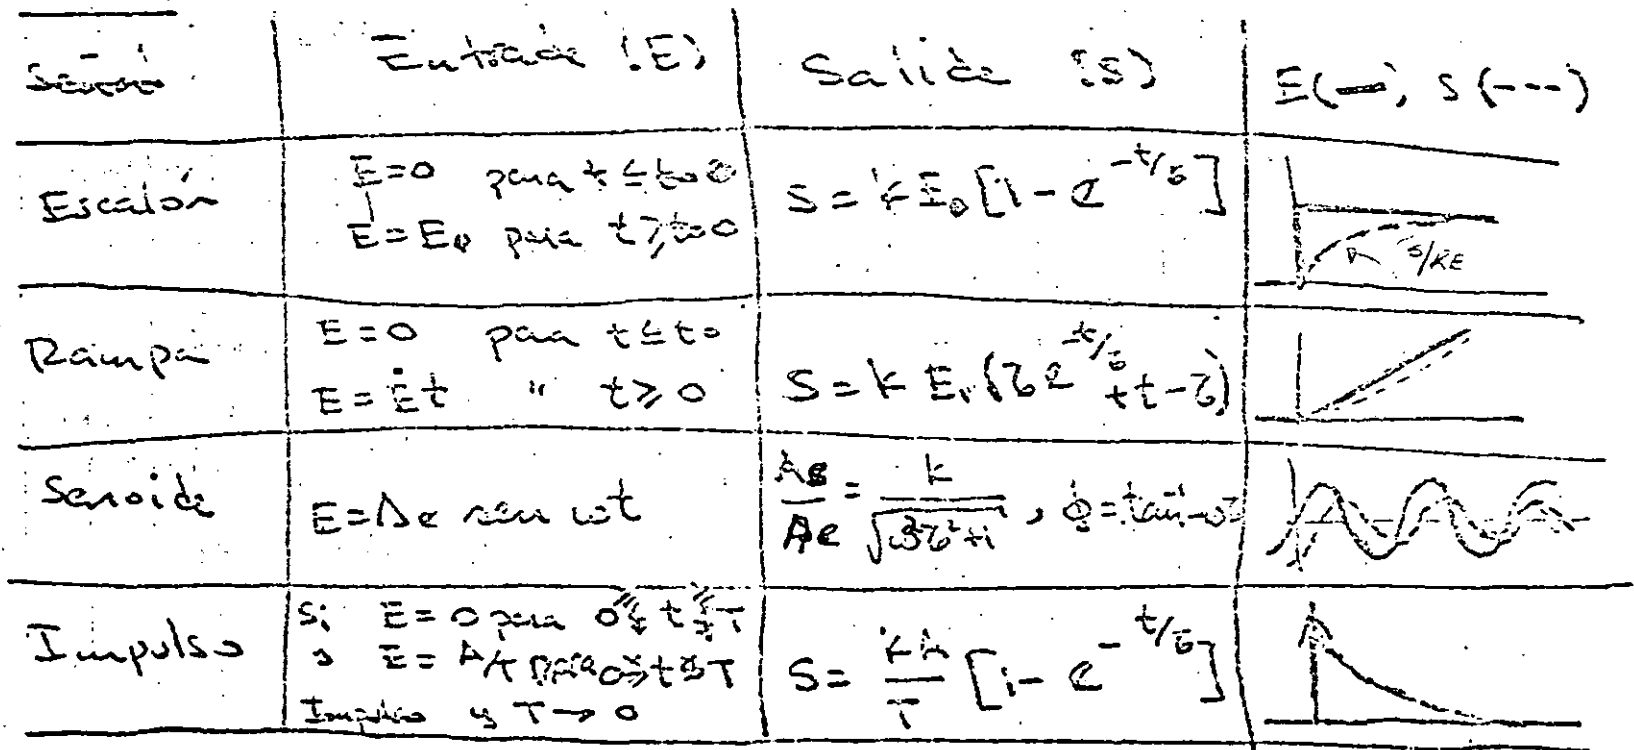 Señal Entrada (E) Salida (S) E(—), S(---)
Escalón
E=0 para t ≤ to=0
E=E₀ para t ≥ to=0
S = k E₀ [1 - e^{-t/τ}]
S/KE
Rampa
E=0 para t ≤ to
E = Ėt " t ≥ 0
S = k E, (τe^{-t/τ} + t - τ)
Senoide
E=Ae sen ωt
As/Ae = k/√(ω²τ²+1), φ=tan⁻¹-ωτ
Impulso
Si E=0 para
E= A/T para
Impulso y T → 0
S = kA/T [1 - e^{-t/τ}]